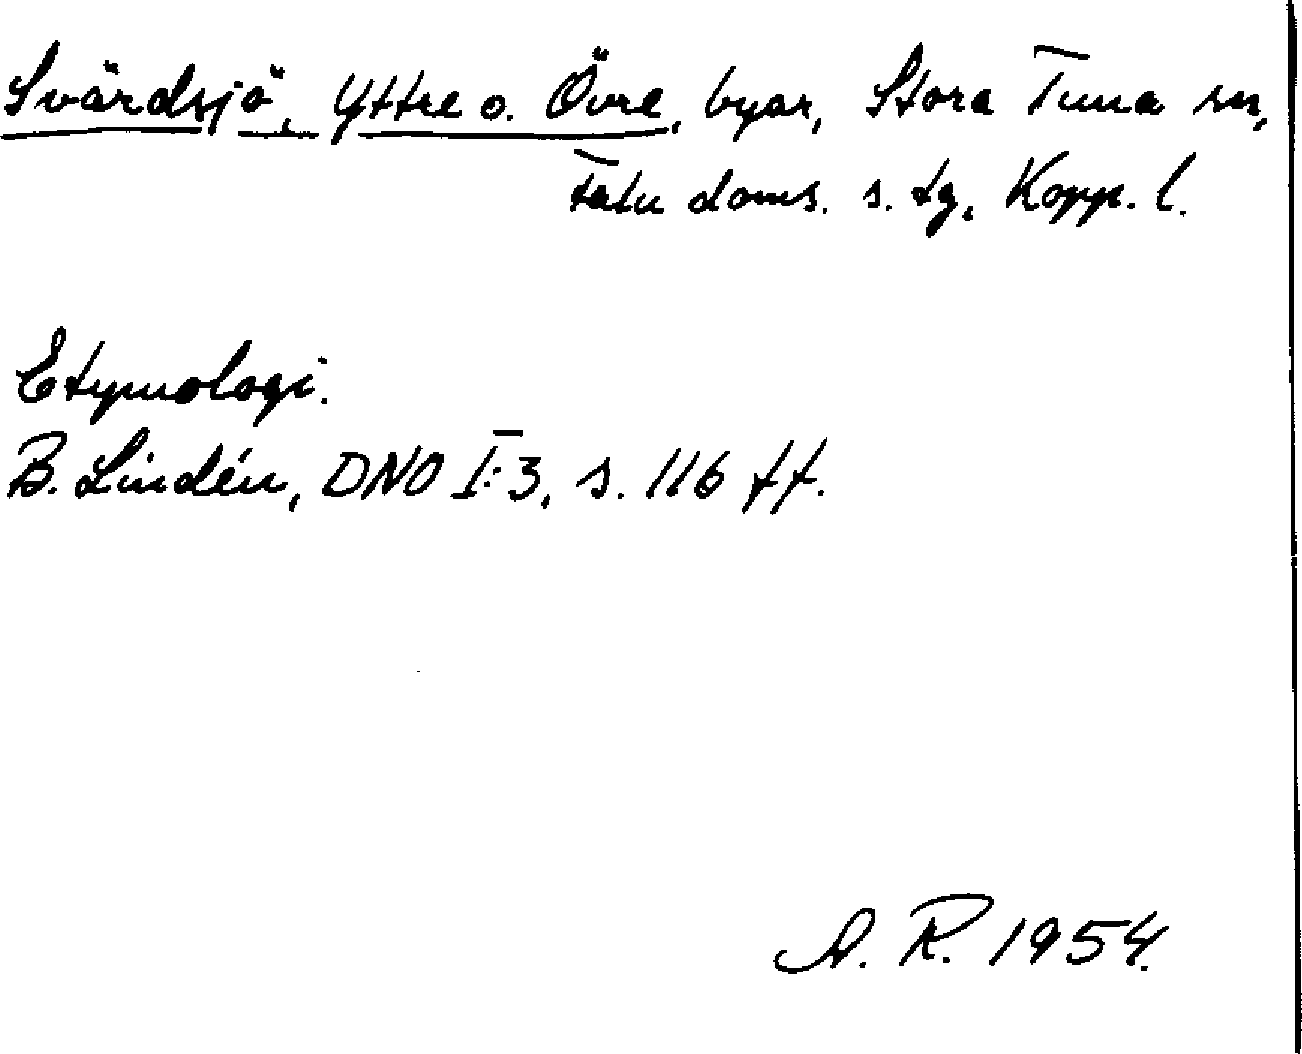 Svärdsjö, Yttre o. Övre, byar, Stora Tuna sn,
Falu doms. s. tg, Kopp. l.
Etymologi.
B. Lindén, DNO I:3, s. 116 ff.
A. R. 1954.